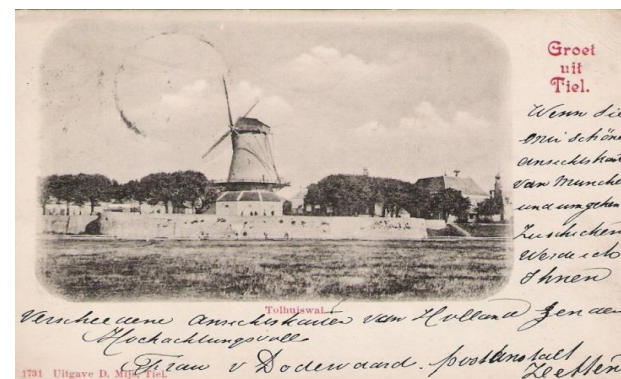 Groet
uit
Tiel.
Wenn Sie
mir schöne
ansichtskar
van Munche
und umgehen
Zuschicken
werde ich
Ihnen
Tolhuiswal.
Verscheedene Ansichtskarten van Holland Zenden
Hochachtungsvoll
Frau v Dodewaard. postanstalt
Zetten
1731 Uitgave D. Mijs, Tiel.